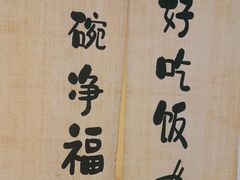 好吃饭
碗净福